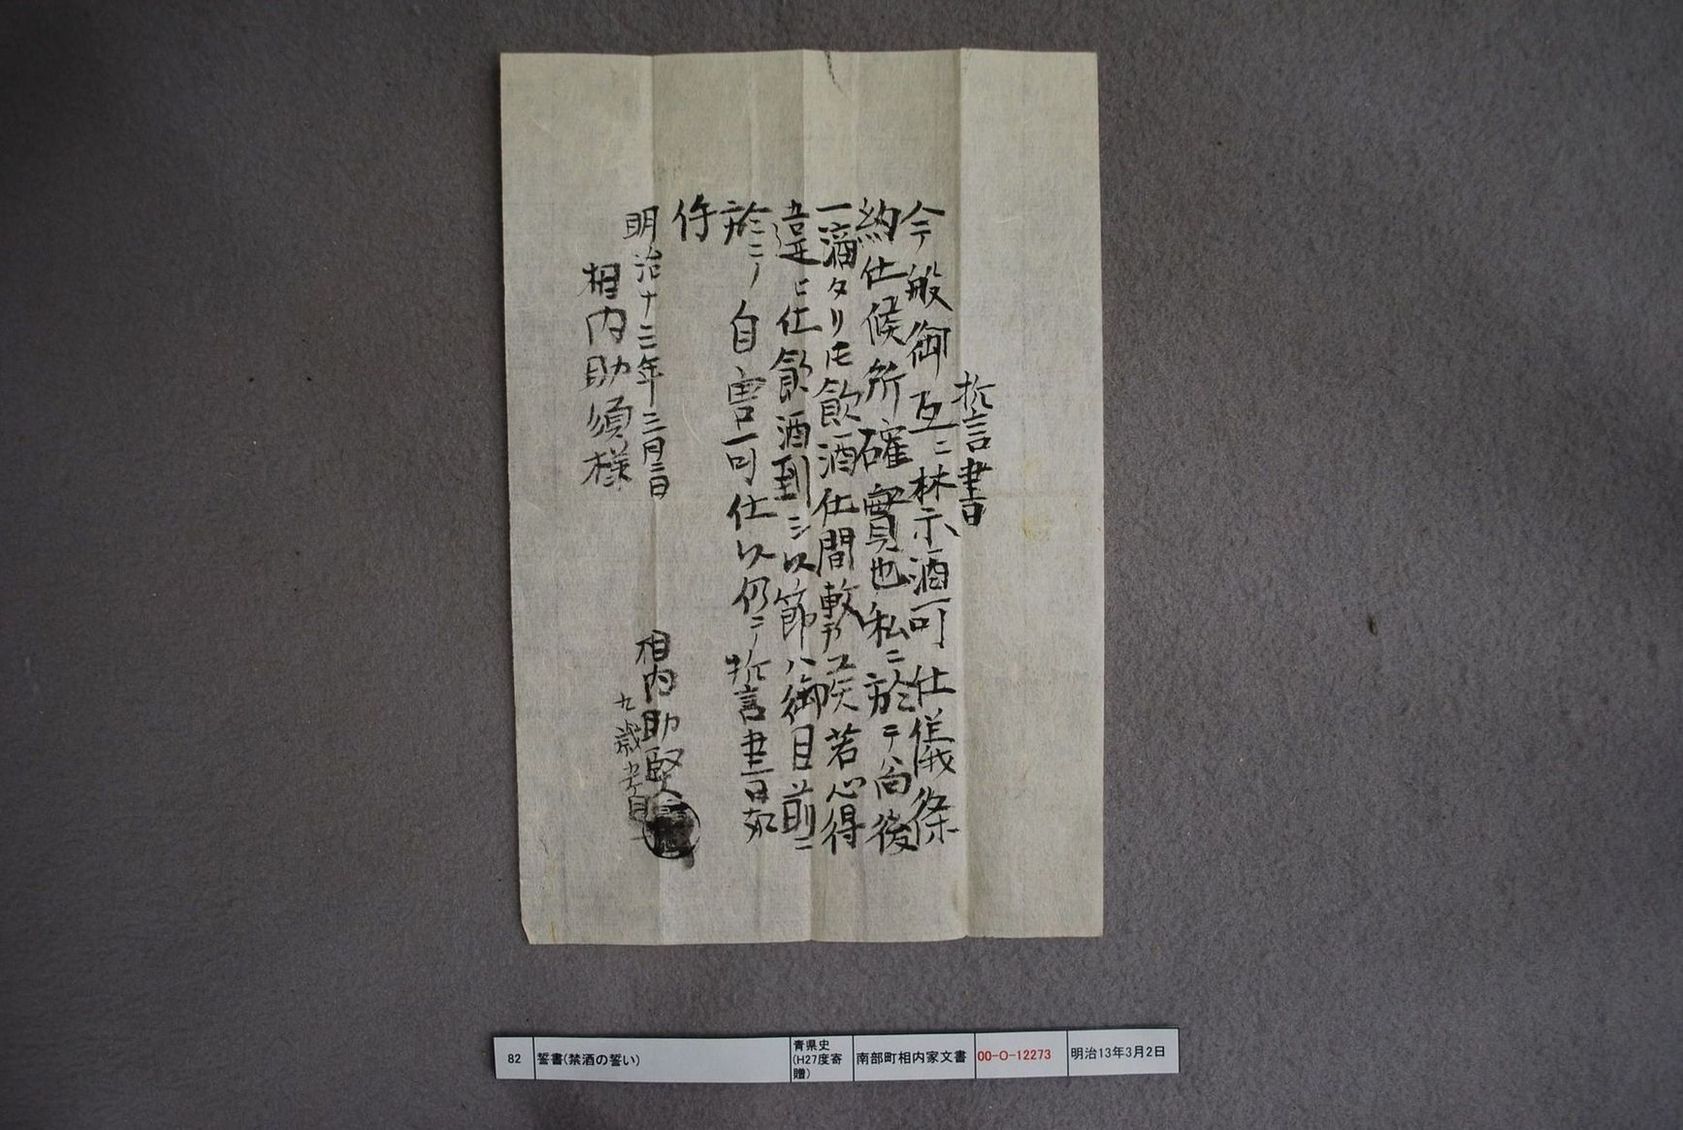 誓書
今般御互ニ禁酒可仕儀條
約仕候所確實也私ニ於テハ尚後
一滴タリ𪜈飲酒仕間敷候若心得
違ヒ仕飲酒到シ以節ハ御目前ニ
於ニ自害可仕以仍ニ誓書如
件
明治十三年三月二日
相内助賢
九歳
相内助須様
82
誓書(禁酒の誓い)
青県史
(H27度寄
贈)
南部町相内家文書
00-O-12273
明治13年3月2日